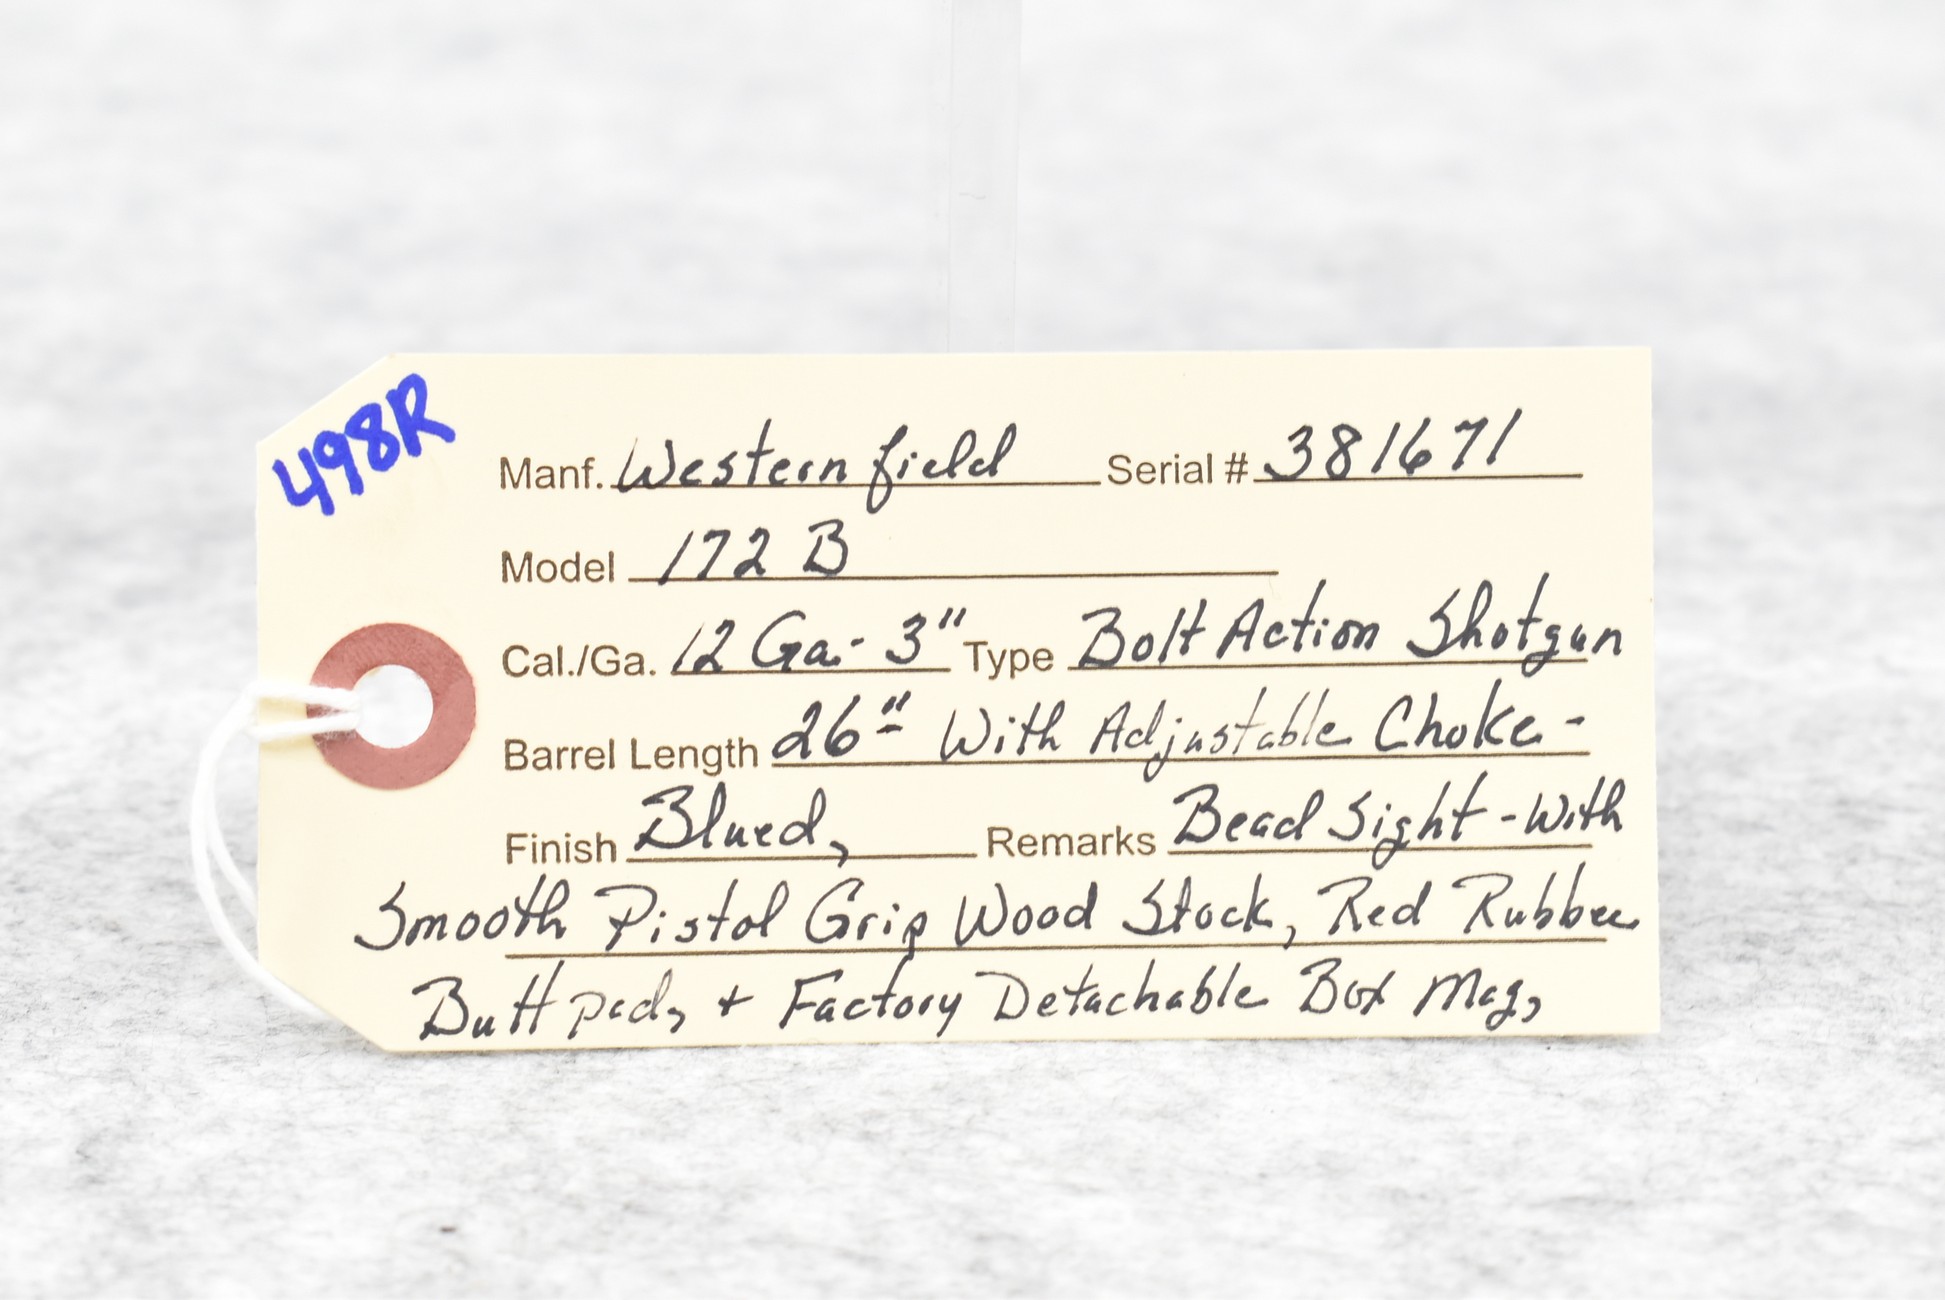 498R
Manf. Western field Serial # 381671
Model 172 B
Cal./Ga. 12 Ga.- 3" Type Bolt Action Shotgun
Barrel Length 26" With Adjustable Choke -
Finish Blued, Remarks Bead Sight - With
Smooth Pistol Grip Wood Stock, Red Rubber
Butt pad, + Factory Detachable Box Mag,